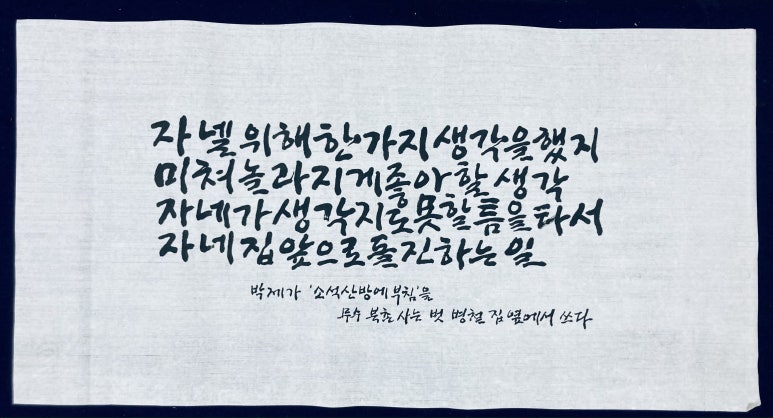 자넬 위해 한 가지 생각을 했지
미쳐 놀라지게 좋아할 생각
자네가 생각지도 못할 틈을 타서
자네 집 앞으로 돌진하는 일
박제가 '소석산방에 부침'을
북촌 사는 벗 병철 집 옆에서 쓰다